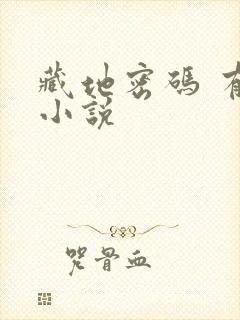 藏地密碼 有
小説
咒骨血